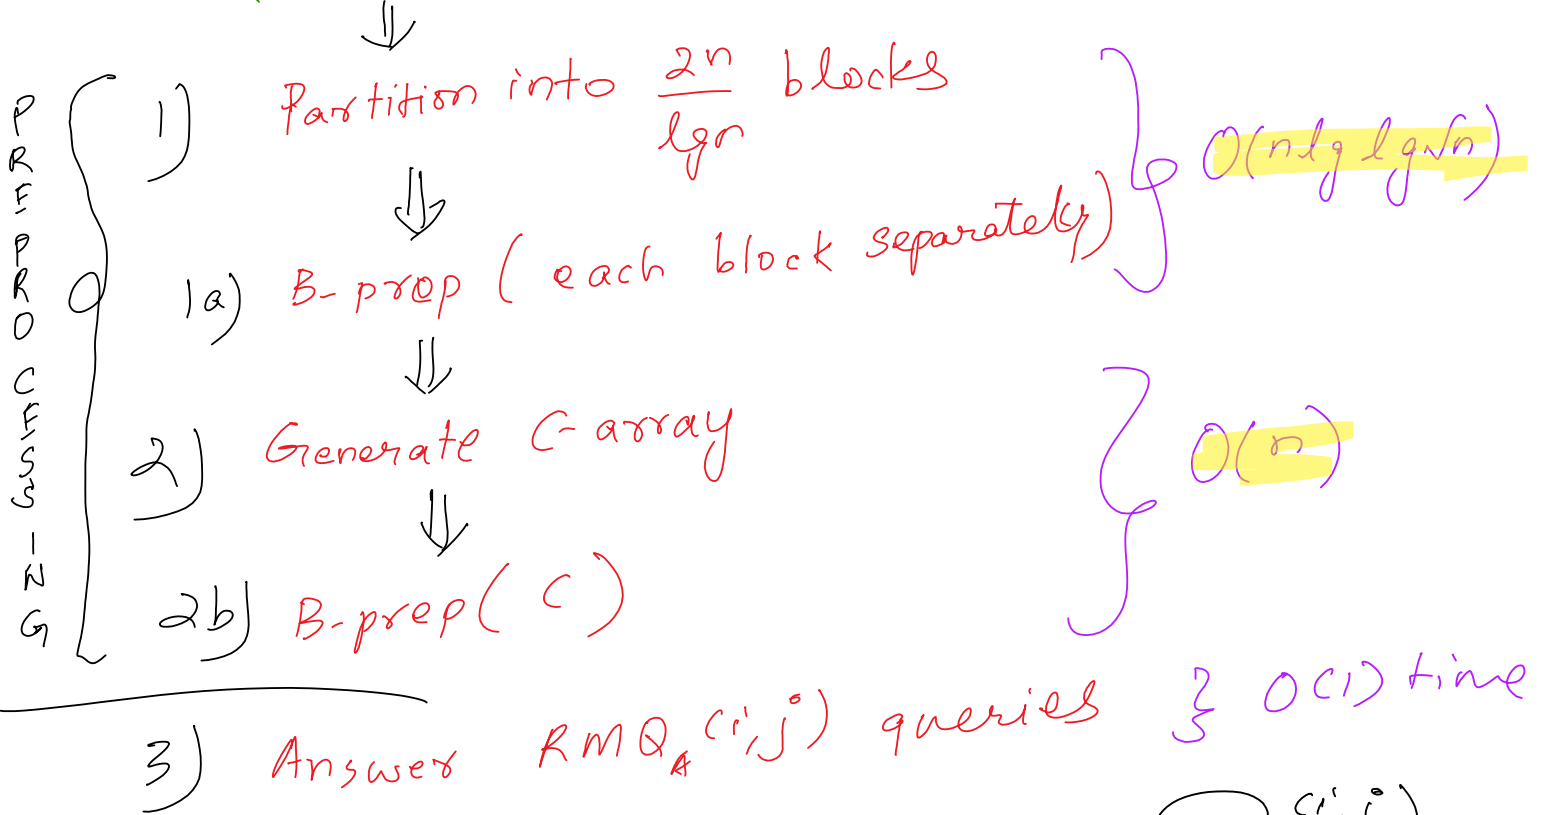 PREPROCESSING
1) Partition into 2n/lgn blocks
O(n lg lg√n)
1a) B-prep ( each block separately)
2) Generate C-array
O(n)
2b) B-prep( C )
3) Answer RMQ_A (i,j) queries } O(1) time
(i,j)